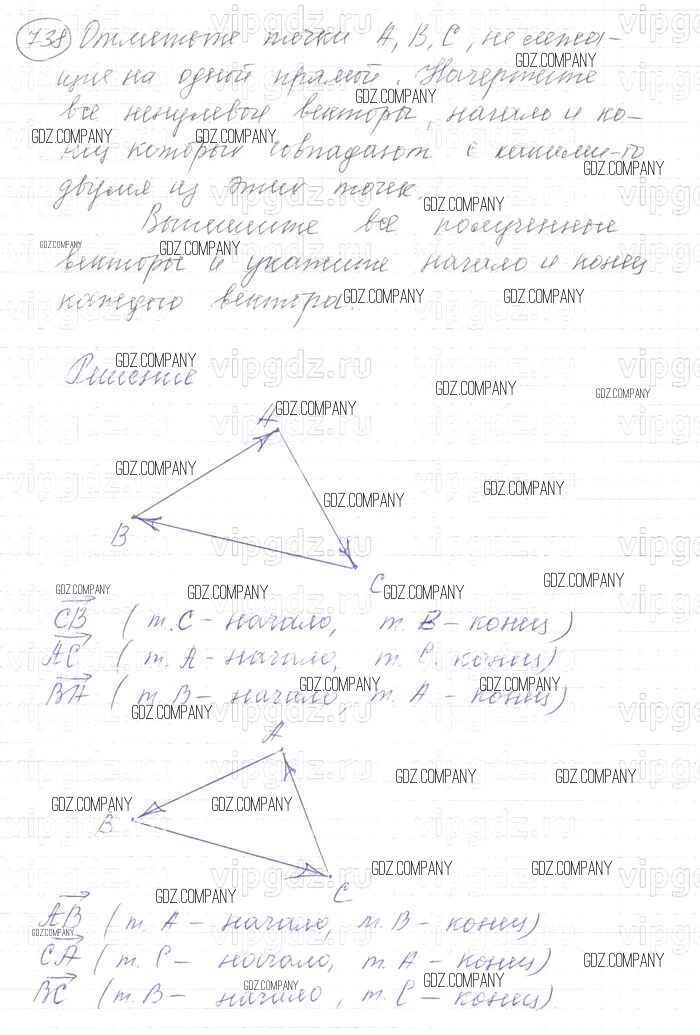 738 Отметьте точки A, B, C, не лежа-
щие на одной прямой. Начертите
все ненулевые векторы, начало и ко-
нец которых совпадают с какими-то
двумя из этих точек.
Выпишите все полученные
векторы и укажите начало и конец
каждого вектора.
Решение
A
B
C
CB (т. C - начало, т. B - конец)
AC (т. A - начало, т. C. конец)
BA (т. B - начало, т. A - конец)
A
B
C
AB (т. A - начало, т. B - конец)
CA (т. C - начало, т. A - конец)
BC (т. B - начало, т. C - конец)
GDZ.COMPANY
vipgdz.ru